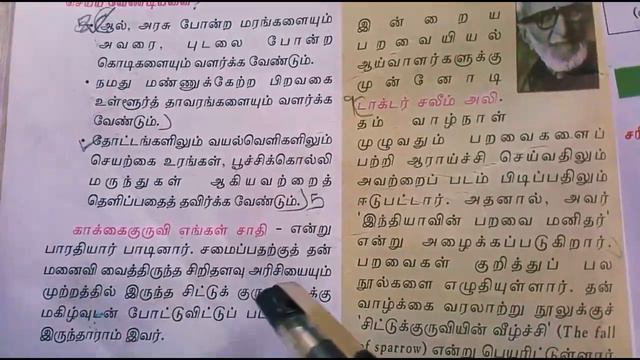 செய்ய வேண்டியவை
ஆல், அரசு போன்ற மரங்களையும்
அவரை, புடலை போன்ற
கொடிகளையும் வளர்க்க வேண்டும்.
• நமது மண்ணுக்கேற்ற பிறவகை
உள்ளூர்த் தாவரங்களையும் வளர்க்க
வேண்டும்.
தோட்டங்களிலும் வயல்வெளிகளிலும்
செயற்கை உரங்கள், பூச்சிக்கொல்லி
மருந்துகள் ஆகியவற்றைத்
தெளிப்பதைத் தவிர்க்க வேண்டும்.) 5
காக்கைகுருவி எங்கள் சாதி - என்று
பாரதியார் பாடினார். சமைப்பதற்குத் தன்
மனைவி வைத்திருந்த சிறிதளவு அரிசியையும்
முற்றத்தில் இருந்த சிட்டுக்
மகிழ்வுடன் போட்டுவிட்டுப்
இருந்தாராம் இவர்.
இன்றைய
பறவையியல்
ஆய்வாளர்களுக்கு
முன்னோடி
டாக்டர் சலீம் அலி.
தம் வாழ்நாள்
முழுவதும் பறவைகளைப்
பற்றி ஆராய்ச்சி செய்வதிலும்
அவற்றைப் படம் பிடிப்பதிலும்
ஈடுபட்டார். அதனால், அவர்
'இந்தியாவின் பறவை மனிதர்'
என்று அழைக்கப்படுகிறார்.
பறவைகள் குறித்துப் பல
நூல்களை எழுதியுள்ளார். தன்
வாழ்க்கை வரலாற்று நூலுக்குச்
'சிட்டுக்குருவியின் வீழ்ச்சி' (The fall
of sparrow) என்று பெயரிட்டுள்ளார்